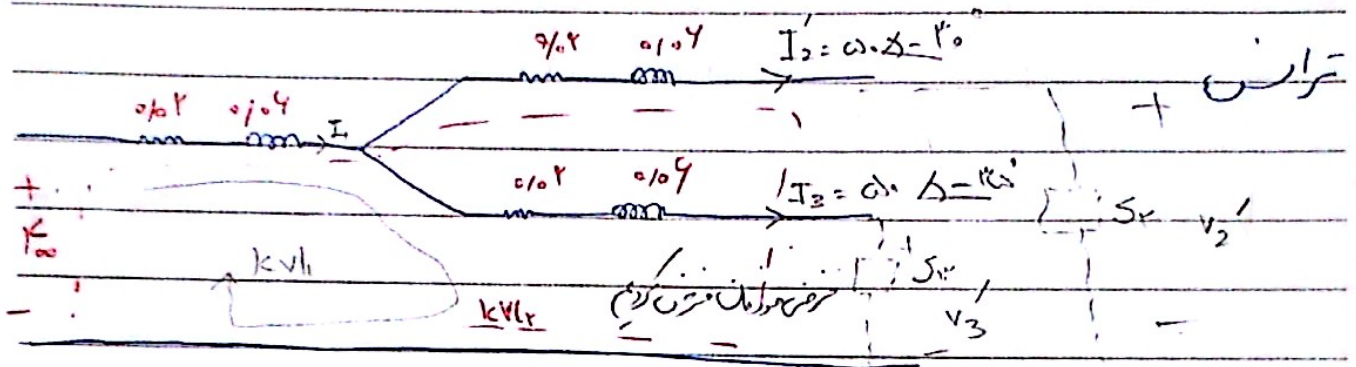 ۰/۰۲ ۰/۰۶ I₂' = ۵۰ ∠-۳۰°
ترانس
۰/۰۲ ۰/۰۶ I₁
+
۰/۰۲ ۰/۰۶ I₃' = ۵۰ ∠-۳۵°
+ S۲ v₂'
۴۰۰
kvl۱
S۳
- kvl۲ v₃' -